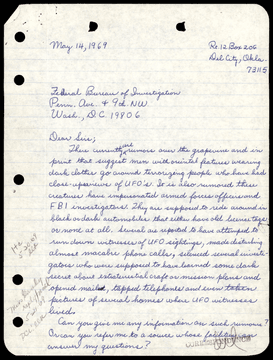 May 14, 1969
Rt 12 Box 206
Del City, Okla.
73115
Federal Bureau of Investigation
Penn. Ave. & 9th NW
Wash., D.C. 19806
Dear Sirs;
There current rumors over the grapevine and in
print that suggest men with oriental features wearing
dark clothes go around terrorizing people who have had
close-up views of UFO's. It is also rumored these
creatures have impersonated armed forces officers and
FBI investigators. They are supposed to ride around in
black or dark automobiles that either have old license tags
or none at all. Several are reported to have attempted to
run down witnesses of UFO sightings, made disturbing
almost macabre phone calls, silenced several investi-
gators who were supposed to have learned some dark
secret about extraterrestrial craft or mission plans and
opened mail, tapped telephones and even taken
pictures of several homes where UFO witnesses
lived.
Can you give me any information on such rumors?
Or can you refer me to a source whose
answer my questions?